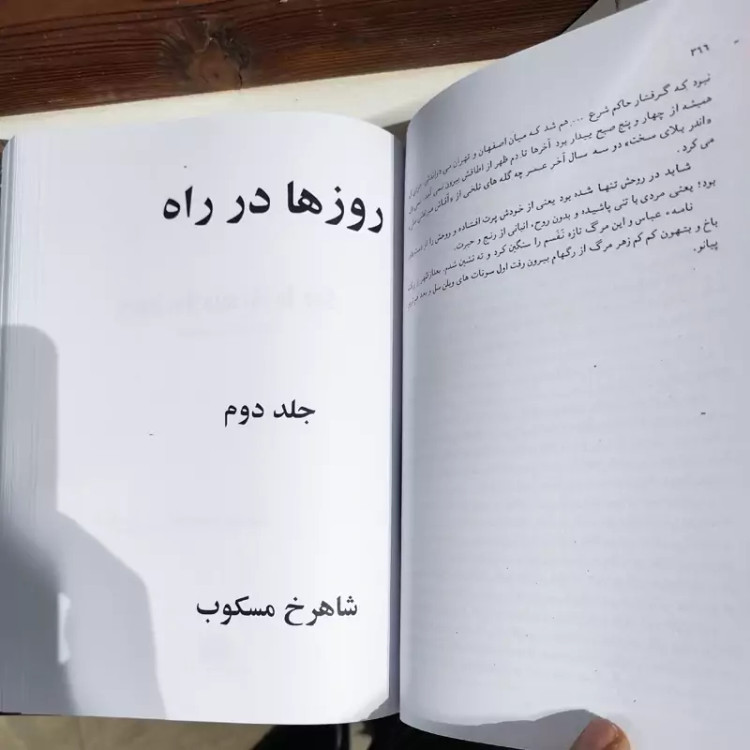 ۳۶۶
نبرد که گرفتار حاکم شرع ... هم شد که میان اصفهان و تهران می
همیشه از چهار و پنج صبح بیدار بود آخرها تا دم ظهر از اطاقش بیرون نمی
«اندر بلای سخت» دو سه سال آخر عمر چه گله های تلخی از
می کرد.
شاید در روحش تنها شده بود یعنی از خودش پرت افتاده و روحش را
بود؛ یعنی مردی با تنی پاشیده و بدون روح، انبانی از رنج و حیرت.
نامه عباس و این مرگ تازه نَفَسم را سنگین کرد و ته نشین شدم.
باخ و بتهون کم کم زهر مرگ از رگهام بیرون رفت اول سونات های ویلن سل و بعد
پیانو.
روزها در راه
جلد دوم
شاهرخ مسکوب